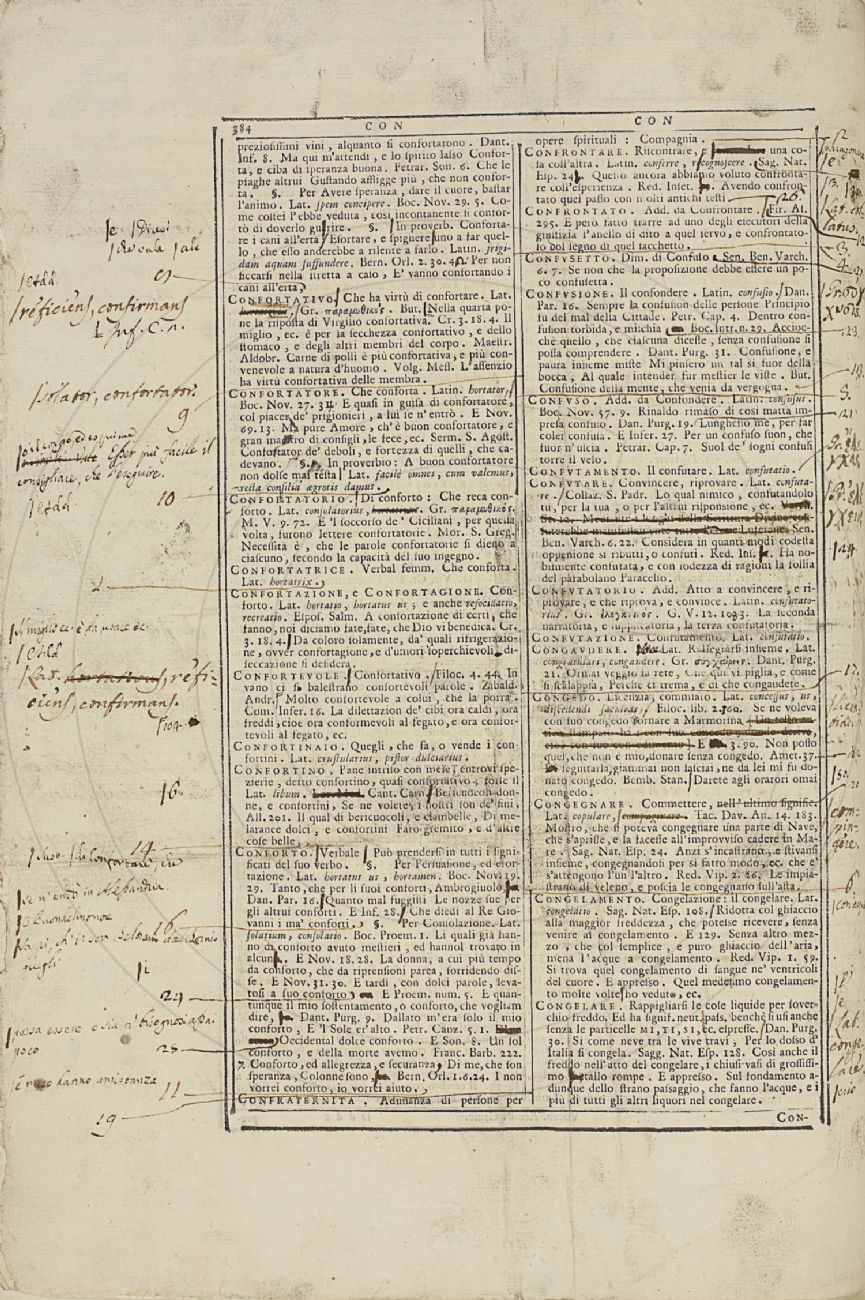 384
CON
CON
preziosissimi vini, alquanto si confortarono. Dant.
Inf. 8. Ma qui m'attendi, e lo spirito lasso Confor-
ta, e ciba di speranza buona. Petrar. Son. 6. Che le
piaghe altrui Gustando affligge più, che non confor-
ta. §. Per Avere speranza, dare il cuore, bastar
l'animo. Lat. spem concipere. Boc. Nov. 29. 5. Co-
me costei l'ebbe veduta, così incontanente si confor-
tò di doverlo guerire. §. In proverb. Conforta-
re i cani all'erta; Esortare, e spignere uno a far quel-
lo, che esso anderebbe a rilente a farlo. Latin. frigi-
dam aquam suffundere. Bern. Orl. 2. 30. 4. Per non
ficcarsi nella stretta a caso, E' vanno confortando i
cani all'erta
CONFORTATIVO. Che ha virtù di confortare. Lat.
Gr. παραμυθικός. But. Nella quarta po-
ne la risposta di Virgilio confortativa. Cr. 3. 18. 4. Il
miglio, ec. è per la secchezza confortativo, e dello
stomaco, e degli altri membri del corpo. Maestr.
Aldobr. Carne di polli è più confortativa, e più con-
venevole a natura d'huomo. Volg. Mess. L'assenzio
ha virtù confortativa delle membra.
CONFORTATORE. Che conforta. Latin. hortator,
Boc. Nov. 27. 31. E quasi in guisa di confortatore,
col piacer de' prigionieri, a lui se n'entrò. E Nov.
69. 13. Ma pure Amore, ch'è buon confortatore, e
gran maestro di consigli, le fece, ec. Serm. S. Agost.
Confortator de' deboli, e fortezza di quelli, che ca-
devano. §. In proverbio: A buon confortatore
non dolse mai testa Lat. facile omnes, cum valemus,
recta consilia aegrotis damus.
CONFORTATORIO. Di conforto: Che reca con-
forto. Lat. consolatorius, Gr. παραμυθικός.
M. V. 9. 72. E 'l soccorso de' Ciciliani, per quella
volta, furono lettere confortatorie. Mor. S. Greg.
Necessità è, che le parole confortatorie si dieno a
ciascuno, secondo la capacità del suo ingegno.
CONFORTATRICE. Verbal femm. Che conforta.
Lat. hortatrix.
CONFORTAZIONE, e CONFORTAGIONE. Con-
forto. Lat. hortatio, hortatus us; e anche refocillatio,
recreatio. Espos. Salm. A confortazione di certi, che
fanno, noi diciamo fate, fate, che Dio vi benedica. Cr.
3. 18. 4. Da coloro solamente, da' quali rifrigerazio-
ne, ovver confortagione, e d'umori soperchievoli di-
seccazione si desidera.
CONFORTEVOLE. Confortativo. Filoc. 4. 44. In
vano ci si balestrano confortevoli parole. Zibald.
Andr. Molto confortevole a colui, che la porta.
Com. Infer. 16. La dilettazion de' cibi ora caldi, ora
freddi, cioè ora conformevoli al fegato, e ora confor-
tevoli al fegato, ec.
CONFORTINAIO. Quegli, che fa, o vende i con-
fortini. Lat. crustularius, pistor dulciarius.
CONFORTINO. Pane intriso con mele, entrovi spe-
zierie, detto confortino, quasi confortativo; forse il
Lat. libum. Cant. Carn. Bericuocoli don-
ne, e confortini, Se ne volete, i nostri son de' fini.
All. 201. Il qual di bericuocoli, e ciambelle, Di me-
larance dolci, e confortini Faro gremito, e d'altre
cose belle.
CONFORTO. Verbale Può prendersi in tutti i signi-
ficati del suo verbo. §. Per Persuasione, ed esor-
tazione. Lat. hortatus us, hortamen. Boc. Nov. 19.
29. Tanto, che per li suoi conforti, Ambrogiuolo.
Dan. Par. 16. Quanto mal fuggisti Le nozze sue per
gli altrui conforti. E Inf. 28. Che diedi al Re Gio-
vanni i ma' conforti. §. Per Consolazione. Lat.
solatium, consolatio. Boc. Proem. 1. Li quali già han-
no di conforto avuto mestieri, ed hannol trovato in
alcun. E Nov. 18. 28. La donna, a cui più tempo
da conforto, che da riprensioni parea, sorridendo dis-
se. E Nov. 31. 30. E tardi, con dolci parole, leva-
tosi a suo conforto E Proem. num. 5. E quan-
tunque il mio sostentamento, o conforto, che vogliam
dire, Dant. Purg. 9. Dallato m'era solo il mio
conforto, E 'l Sole er'alto. Petr. Canz. 5. 1.
Occidental dolce conforto. E Son. 8. Un sol
conforto, e della morte avemo. Franc. Barb. 222.
7. Conforto, ed allegrezza, e securanza, Di me, che son
speranza, Colonne sono. Bern. Orl. 1. 6. 24. I non
vorrei conforto, io vorrei aiuto.
CONFRATERNITA. Adunanza di persone per
opere spirituali: Compagnia.
CONFRONTARE. Riscontrare, una co-
sa coll'altra. Latin. conferre, recognoscere. Sag. Nat.
Esp. 24. Quello ancora abbiamo voluto confronta-
re coll'esperienza. Red. Inset. Avendo confron-
tato quel passo con molti antichi testi
CONFRONTATO. Add. da Confrontare. Fir. As.
295. E però fatto trarre ad uno degli esecutori della
giustizia l'anello di dito a quel servo, e confrontato-
lo dol segno di quel sacchetto.
CONFUSETTO. Dim. di Confuso. Sen. Ben. Varch.
6. 7. Se non che la proposizione debbe essere un po-
co confusetta.
CONFUSIONE. Il confondere. Latin. confusio. Dan.
Par. 16. Sempre la confusion delle persone Principio
fu del mal della Cittade. Petr. Cap. 4. Dentro con-
fusion torbida, e mischia Boc. Intr. n. 29. Accioc-
chè quello, che ciascuna dicesse, senza confusione si
possa comprendere. Dant. Purg. 31. Confusione, e
paura insieme miste Mi pinsero un tal sì fuor della
bocca, Al quale intender fur mestier le viste. But.
Confusione della mente, che venia da vergogna.
CONFUSO. Add. da Confondere. Latin. confusus.
Boc. Nov. 57. 9. Rinaldo rimaso di così matta im-
presa confuso. Dan. Purg. 19. Lunghesso me, per far
colei confusa. E Infer. 27. Per un confuso suon, che
fuor n'uscia. Petrar. Cap. 7. Suol de' sogni confusi
torre il velo.
CONFUTAMENTO. Il confutare. Lat. confutatio.
CONFUTARE. Convincere, riprovare. Lat. confuta-
re. Collaz. S. Padr. Lo qual nimico, confutandolo
tu, per la tua, o per l'altrui risponsione, ec.
Sen.
Ben. Varch. 6. 22. Considera in quanti modi codesta
oppenione si ributti, o confuti. Red. Ins. Ha no-
bilmente confutata, e con sodezza di ragioni la follia
del parabolano Paracelso.
CONFUTATORIO. Add. Atto a convincere, e ri-
provare, e che riprova, e convince. Latin. confutato-
rius. Gr. G. V. 12. 1083. La seconda
narratoria, e supplicatoria, la terza confutatoria.
CONFUTAZIONE. Confutamento. Lat. confutatio.
CONGAUDERE. Rallegrarsi insieme, Lat.
congratulari, congaudere. Gr. συγχαίρειν. Dant. Purg.
21. Ormai veggio la rete, Che qui vi piglia, e come
si scalappia, Perchè ci trema, e di che congaudete.
CONGEDO. Licenzia, commiato. Lat. concessus, us,
discedendi facultas, Filoc. lib. 2. 160. Se ne voleva
con suo congedo tornare a Marmorina
E 3. 90. Non posso
quel, che non è mio, donare senza congedo. Amet. 37.
seguitarla, giammai non lasciai, ne da lei mi fu do-
nato congedo. Bemb. Stan. Darete agli orarori omai
congedo.
CONGEGNARE. Commettere, nell'ultimo signific.
Lat. copulare, compaginare. Tac. Dav. An. 14. 183.
Mostrò, che si poteva congegnare una parte di Nave,
che s'aprisse, e la facesse all'improvviso cadere in Ma-
re. Sag. Nat. Esp. 24. Anzi s'incastrano, e stivansi
insieme, congegnandoli per sì fatto modo, ec. che e'
s'attengono l'un l'altro. Red. Vip. 2. 26. Le impia-
strano di veleno, e poscia le congegnano sull'asta.
CONGELAMENTO. Congelazione: il congelare. Lat.
congelatio. Sag. Nat. Esp. 108. Ridotta col ghiaccio
alla maggior freddezza, che potesse ricevere, senza
venire al congelamento. E 129. Senza altro mez-
zo, che col semplice, e puro ghiaccio dell'aria,
mena l'acque a congelamento. Red. Vip. 1. 59.
Si trova quel congelamento di sangue ne' ventricoli
del cuore. E appresso. Quel medesimo congelamen-
to molte volte ho veduto, ec.
CONGELARE. Rappigliarsi le cose liquide per sover-
chio freddo. Ed ha signif. neut. pass. benchè si usi anche
senza le particelle MI, TI, SI, ec. espresse. Dan. Purg.
30. Sì come neve tra le vive travi, Per lo dosso d'
Italia si congela. Sagg. Nat. Esp. 128. Così anche il
freddo nell'atto del congelare, i chiusi vasi di grossissi-
mo metallo rompe. E appresso. Sul fondamento a-
dunque dello strano passaggio, che fanno l'acque, e i
più di tutti gli altri liquori nel congelare.
CON-
reficiens, confirmans
Solator, confortator.
9
Esser più facile il
consigliare, che l'eseguire.
10
refi-
ciens, confirmans.
16
14
16
24
25
11
19